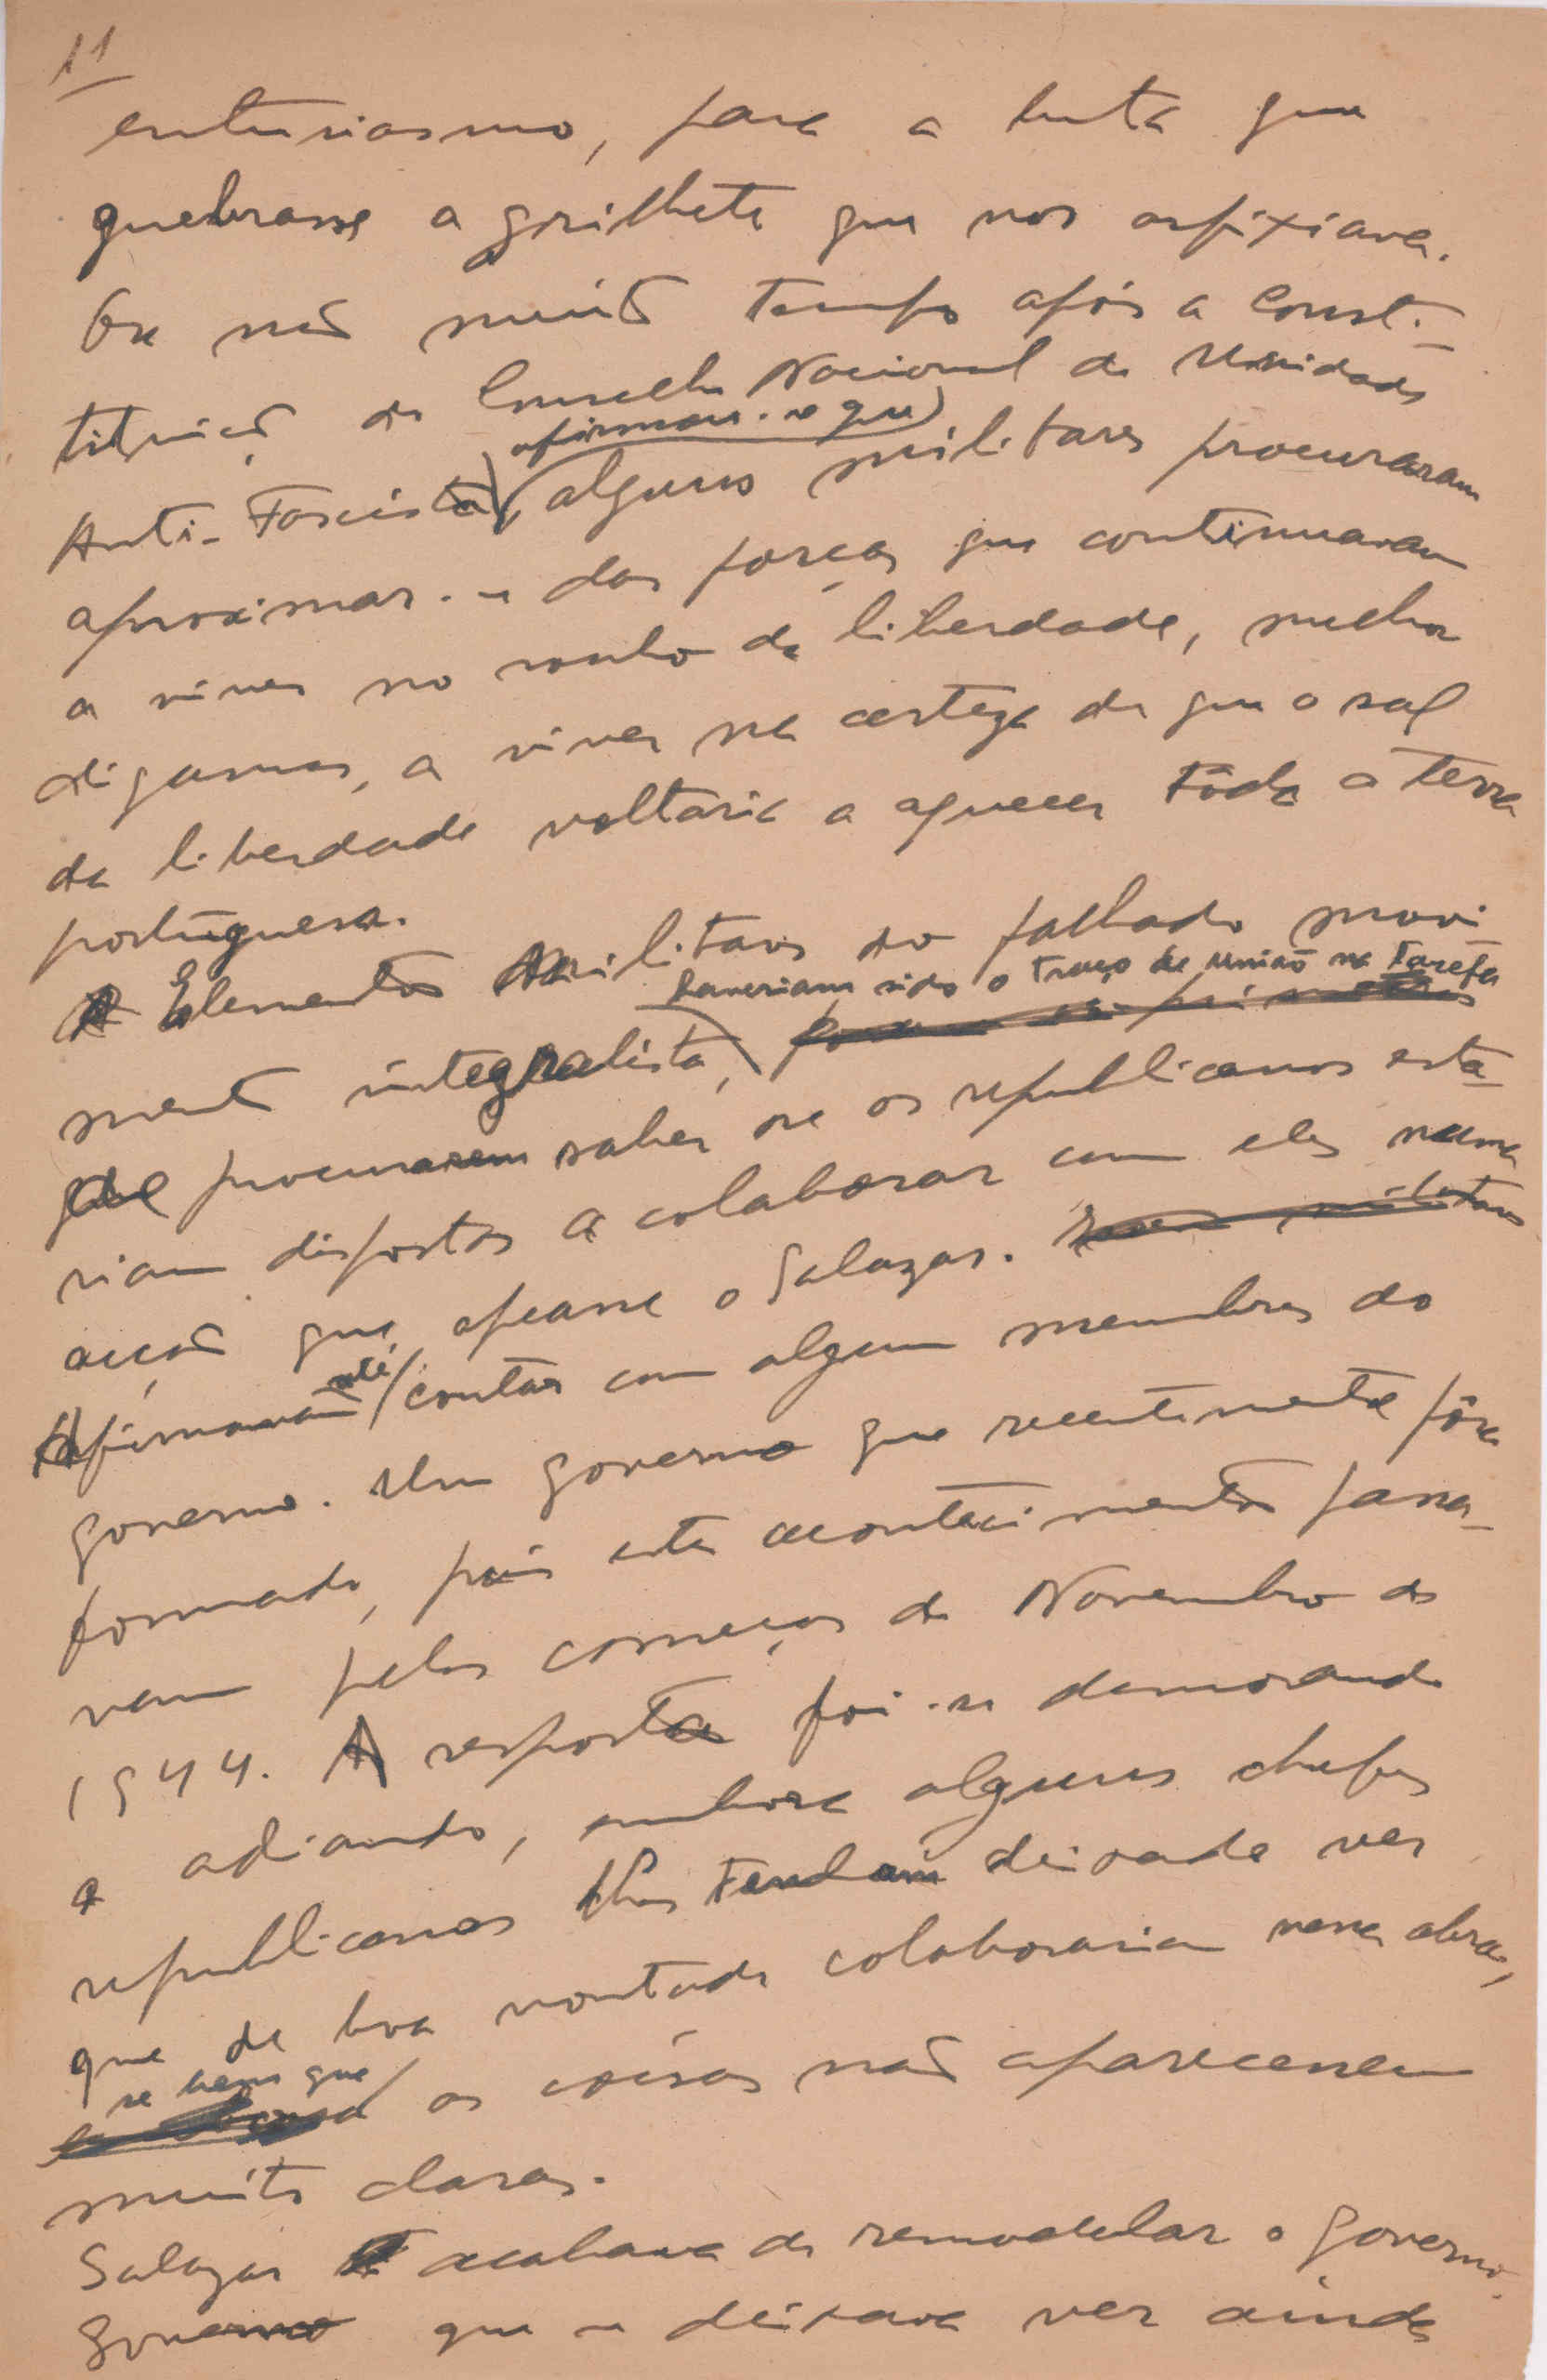 11
entusiasmo, para a luta que
quebrasse a grilheta que nos asfixiava.
Ora não muito tempo após a Consti-
tituição do Conselho Nacional de Unidade
afirmou-se que
Anti-Fascista, alguns militares procuraram
aproximar-se das forças que continuavam
a viver no sonho da liberdade, melhor
digamos, a viver na certeza de que o sol
da liberdade voltaria a aquecer tôda a terra
portuguesa.
Elementos militares do falhado movi
haveriam sido o traço de união na tarefa
mento integralista, foram os primeiros
de procurarem saber se os republicanos esta-
riam dispostos a colaborar com eles numa
acção que apeasse o Salazar. militares
até
Afirmavam contar com algum membros do
governo. Um governo que recentemente fôra
formado, pois este acontecimento passa-
vam pelos começos de Novembro de
1944. A resposta foi-se demorando
e adiando, embora alguns chefes
republicanos lhes tenham deixado ver
que de boa vontade colaborariam nessa obra,
se bem que
as coisas não aparecessem
muito claras.
Salazar acabava de remodelar o governo.
Governo que se deixava ver ainda